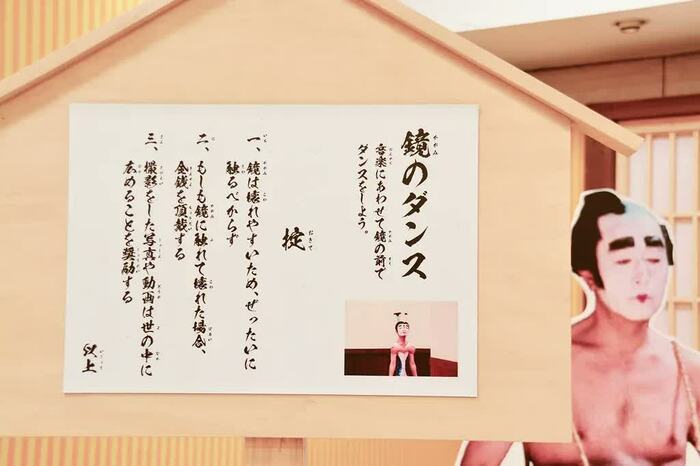 鏡のダンス
音楽にあわせて鏡の前で
ダンスをしよう。
掟
一、鏡は壊れやすいため、ぜったいに
触るべからず
二、もしも鏡に触れて壊れた場合、
金銭を頂戴する
三、撮影をした写真や動画は世の中に
広めることを奨励する
以上